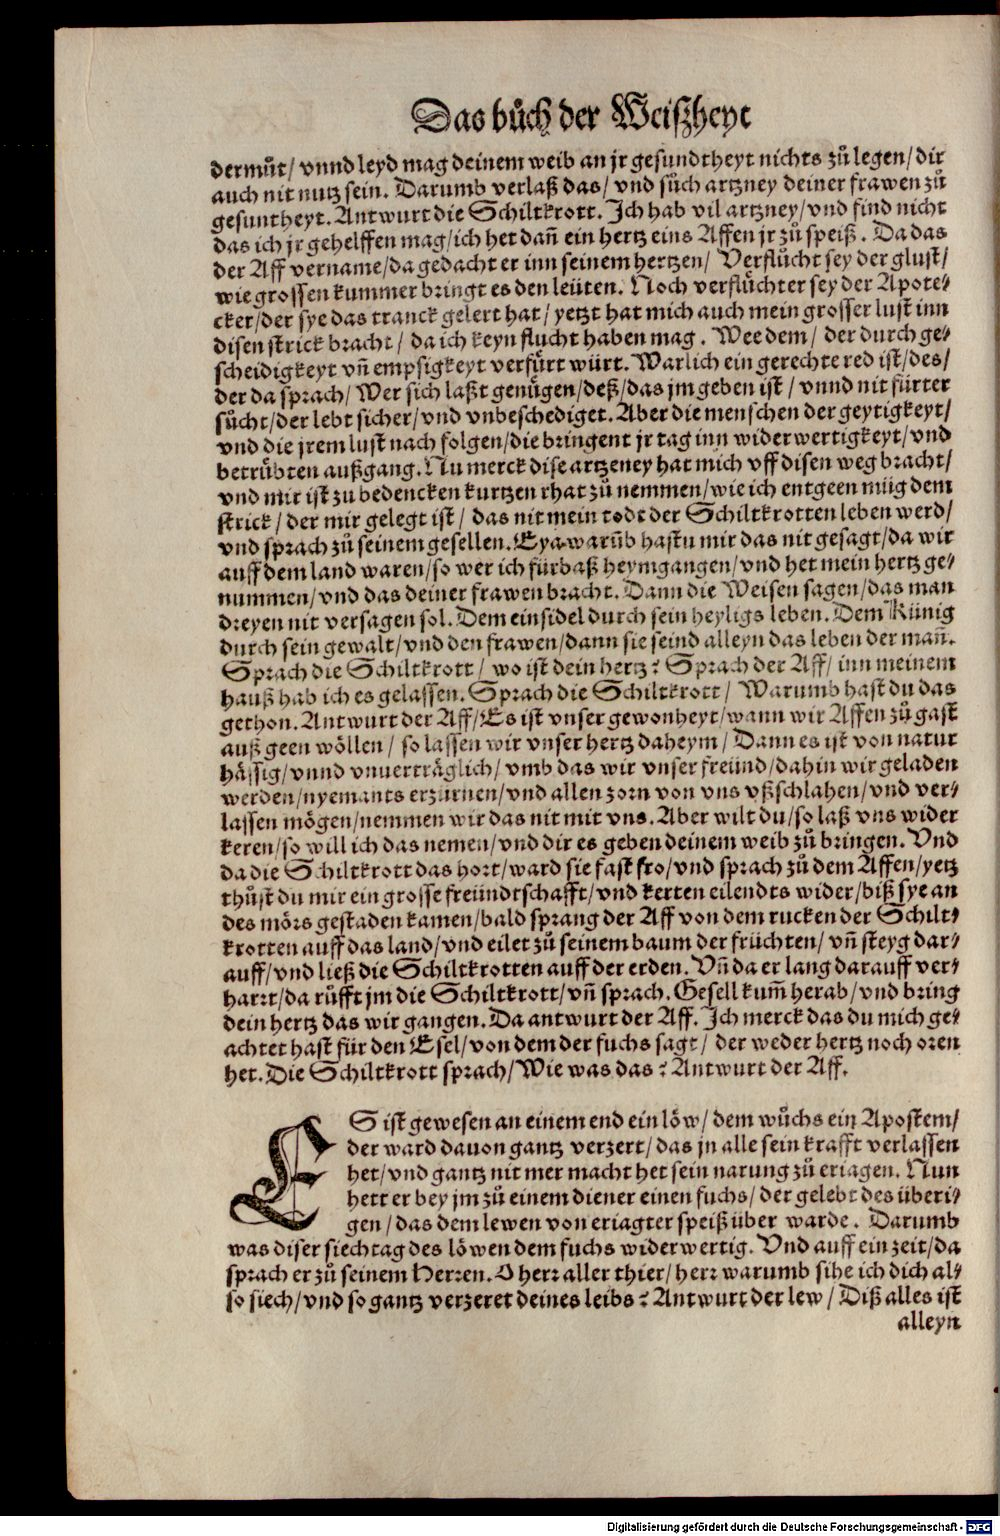 Das bůch der Weißheyt
dermůt/ vnnd leyd mag deinem weib an jr gesundtheyt nichts zů legen/ dir
auch nit nutz sein. Darumb verlaß das/ vnd sůch artzney deiner frawen zů
gesuntheyt. Antwurt die Schiltkrott. Ich hab vil artzney/ vnd find nicht
das ich jr gehelffen mag/ ich het dañ ein hertz eins Affen jr zů speiß. Da das
der Aff vername/ da gedacht er inn seinem hertzen/ Verflůcht sey der glust/
wie grossen kummer bringt es den leüten. Noch verflůchter sey der Apote⸗
cker/ der sye das tranck gelert hat/ yetzt hat mich auch mein grosser lust inn
disen strick bracht/ da ich keyn flucht haben mag. Wee dem/ der durch ge⸗
scheidigkeyt vñ empsigkeyt verfürt würt. Warlich ein gerechte red ist/ des/
der da sprach/ Wer sich laßt genügen/ deß/ das jm geben ist/ vnnd nit fürter
sůcht/ der lebt sicher/ vnd vnbeschediget. Aber die menschen der geytigkeyt/
vnd die jrem lust nach folgen/ die bringent jr tag inn widerwertigkeyt/ vnd
betrübten außgang. Nu merck dise artzeney hat mich vff disen weg bracht/
vnd mir ist zu bedencken kurtzen rhat zů nemmen/ wie ich entgeen müg dem
strick/ der mir gelegt ist/ das nit mein todt der Schiltkrotten leben werd/
vnd sprach zů seinem gesellen. Eya warũb hastu mir das nit gesagt/ da wir
auff dem land waren/ so wer ich fürbaß heymgangen/ vnd het mein hertz ge⸗
nummen/ vnd das deiner frawen bracht. Dann die Weisen sagen/ das man
dreyen nit versagen sol. Dem einsidel durch sein heyligs leben. Dem Künig
durch sein gewalt/ vnd den frawen/ dann sie seind alleyn das leben der mañ.
Sprach die Schiltkrott/ wo ist dein hertz? Sprach der Aff/ inn meinem
hauß hab ich es gelassen. Sprach die Schiltkrott/ Warumb hast du das
gethon. Antwurt der Aff/ Es ist vnser gewonheyt/ wann wir Affen zů gast
auß geen wöllen/ so lassen wir vnser hertz daheym/ Dann es ist von natur
hässig/ vnnd vnuerträglich/ vmb das wir vnser freünd/ dahin wir geladen
werden/ nyemants erzürnen/ vnd allen zorn von vns vßschlahen/ vnd ver⸗
lassen mögen/ nemmen wir das nit mit vns. Aber wilt du/ so laß vns wider
keren/ so will ich das nemen/ vnd dir es geben deinem weib zů bringen. Vnd
da die Schiltkrott das hort/ ward sie fast fro/ vnd sprach zů dem Affen/ yetz
thůst du mir ein grosse freündtschafft/ vnd kerten eilendts wider/ biß sye an
des mörs gestaden kamen/ bald sprang der Aff von dem rucken der Schilt⸗
krotten auff das land/ vnd eilet zů seinem baum der früchten/ vñ steyg dar⸗
auff/ vnd ließ die Schiltkrotten auff der erden. Vñ da er lang darauff ver⸗
harrt/ da růfft jm die Schiltkrott/ vñ sprach. Gesell kum̃ herab/ vnd bring
dein hertz das wir gangen. Da antwurt der Aff. Ich merck das du mich ge⸗
achtet hast für den Esel/ von dem der fuchs sagt/ der weder hertz noch oren
het. Die Schiltkrott sprach/ Wie was das? Antwurt der Aff.
ES ist gewesen an einem end ein löw/ dem wůchs ein Apostem/
der ward dauon gantz verzert/ das jn alle sein krafft verlassen
het/ vnd gantz nit mer macht het sein narung zů eriagen. Nun
hett er bey jm zů einem diener einen fuchs/ der gelebt des überi⸗
gen/ das dem lewen von eriagter speiß über warde. Darumb
was diser siechtag des löwen dem fuchs widerwertig. Vnd auff ein zeit/ da
sprach er zů seinem Herren. O herr aller thier/ herr warumb sihe ich dich al⸗
so siech/ vnd so gantz verzeret deines leibs? Antwurt der lew/ Diß alles ist
alleyn
Digitalisierung gefördert durch die Deutsche Forschungsgemeinschaft - DFG